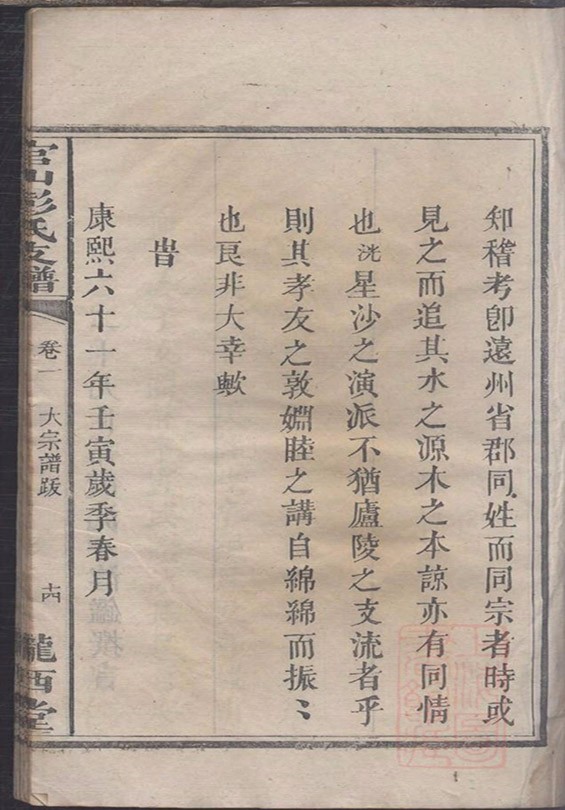 知稽考卽遠州省郡同姓而同宗者時或
見之而追其水之源木之本諒亦有同情
也洸星沙之演派不猶廬陵之支流者乎
則其孝友之敦婣睦之講自綿綿而振〻
也良非大幸歟
旹
康熙六十一年壬寅歲季春月
官山彭氏支譜
卷一
大宗譜跋
十四
隴西堂